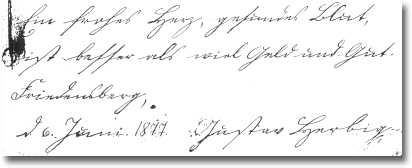 Ein frohes Herz, gesundes Blut,
ist besser als viel Geld und Gut.
Friedensberg,
d. 6. Juni 1877. Gustav Herbig.